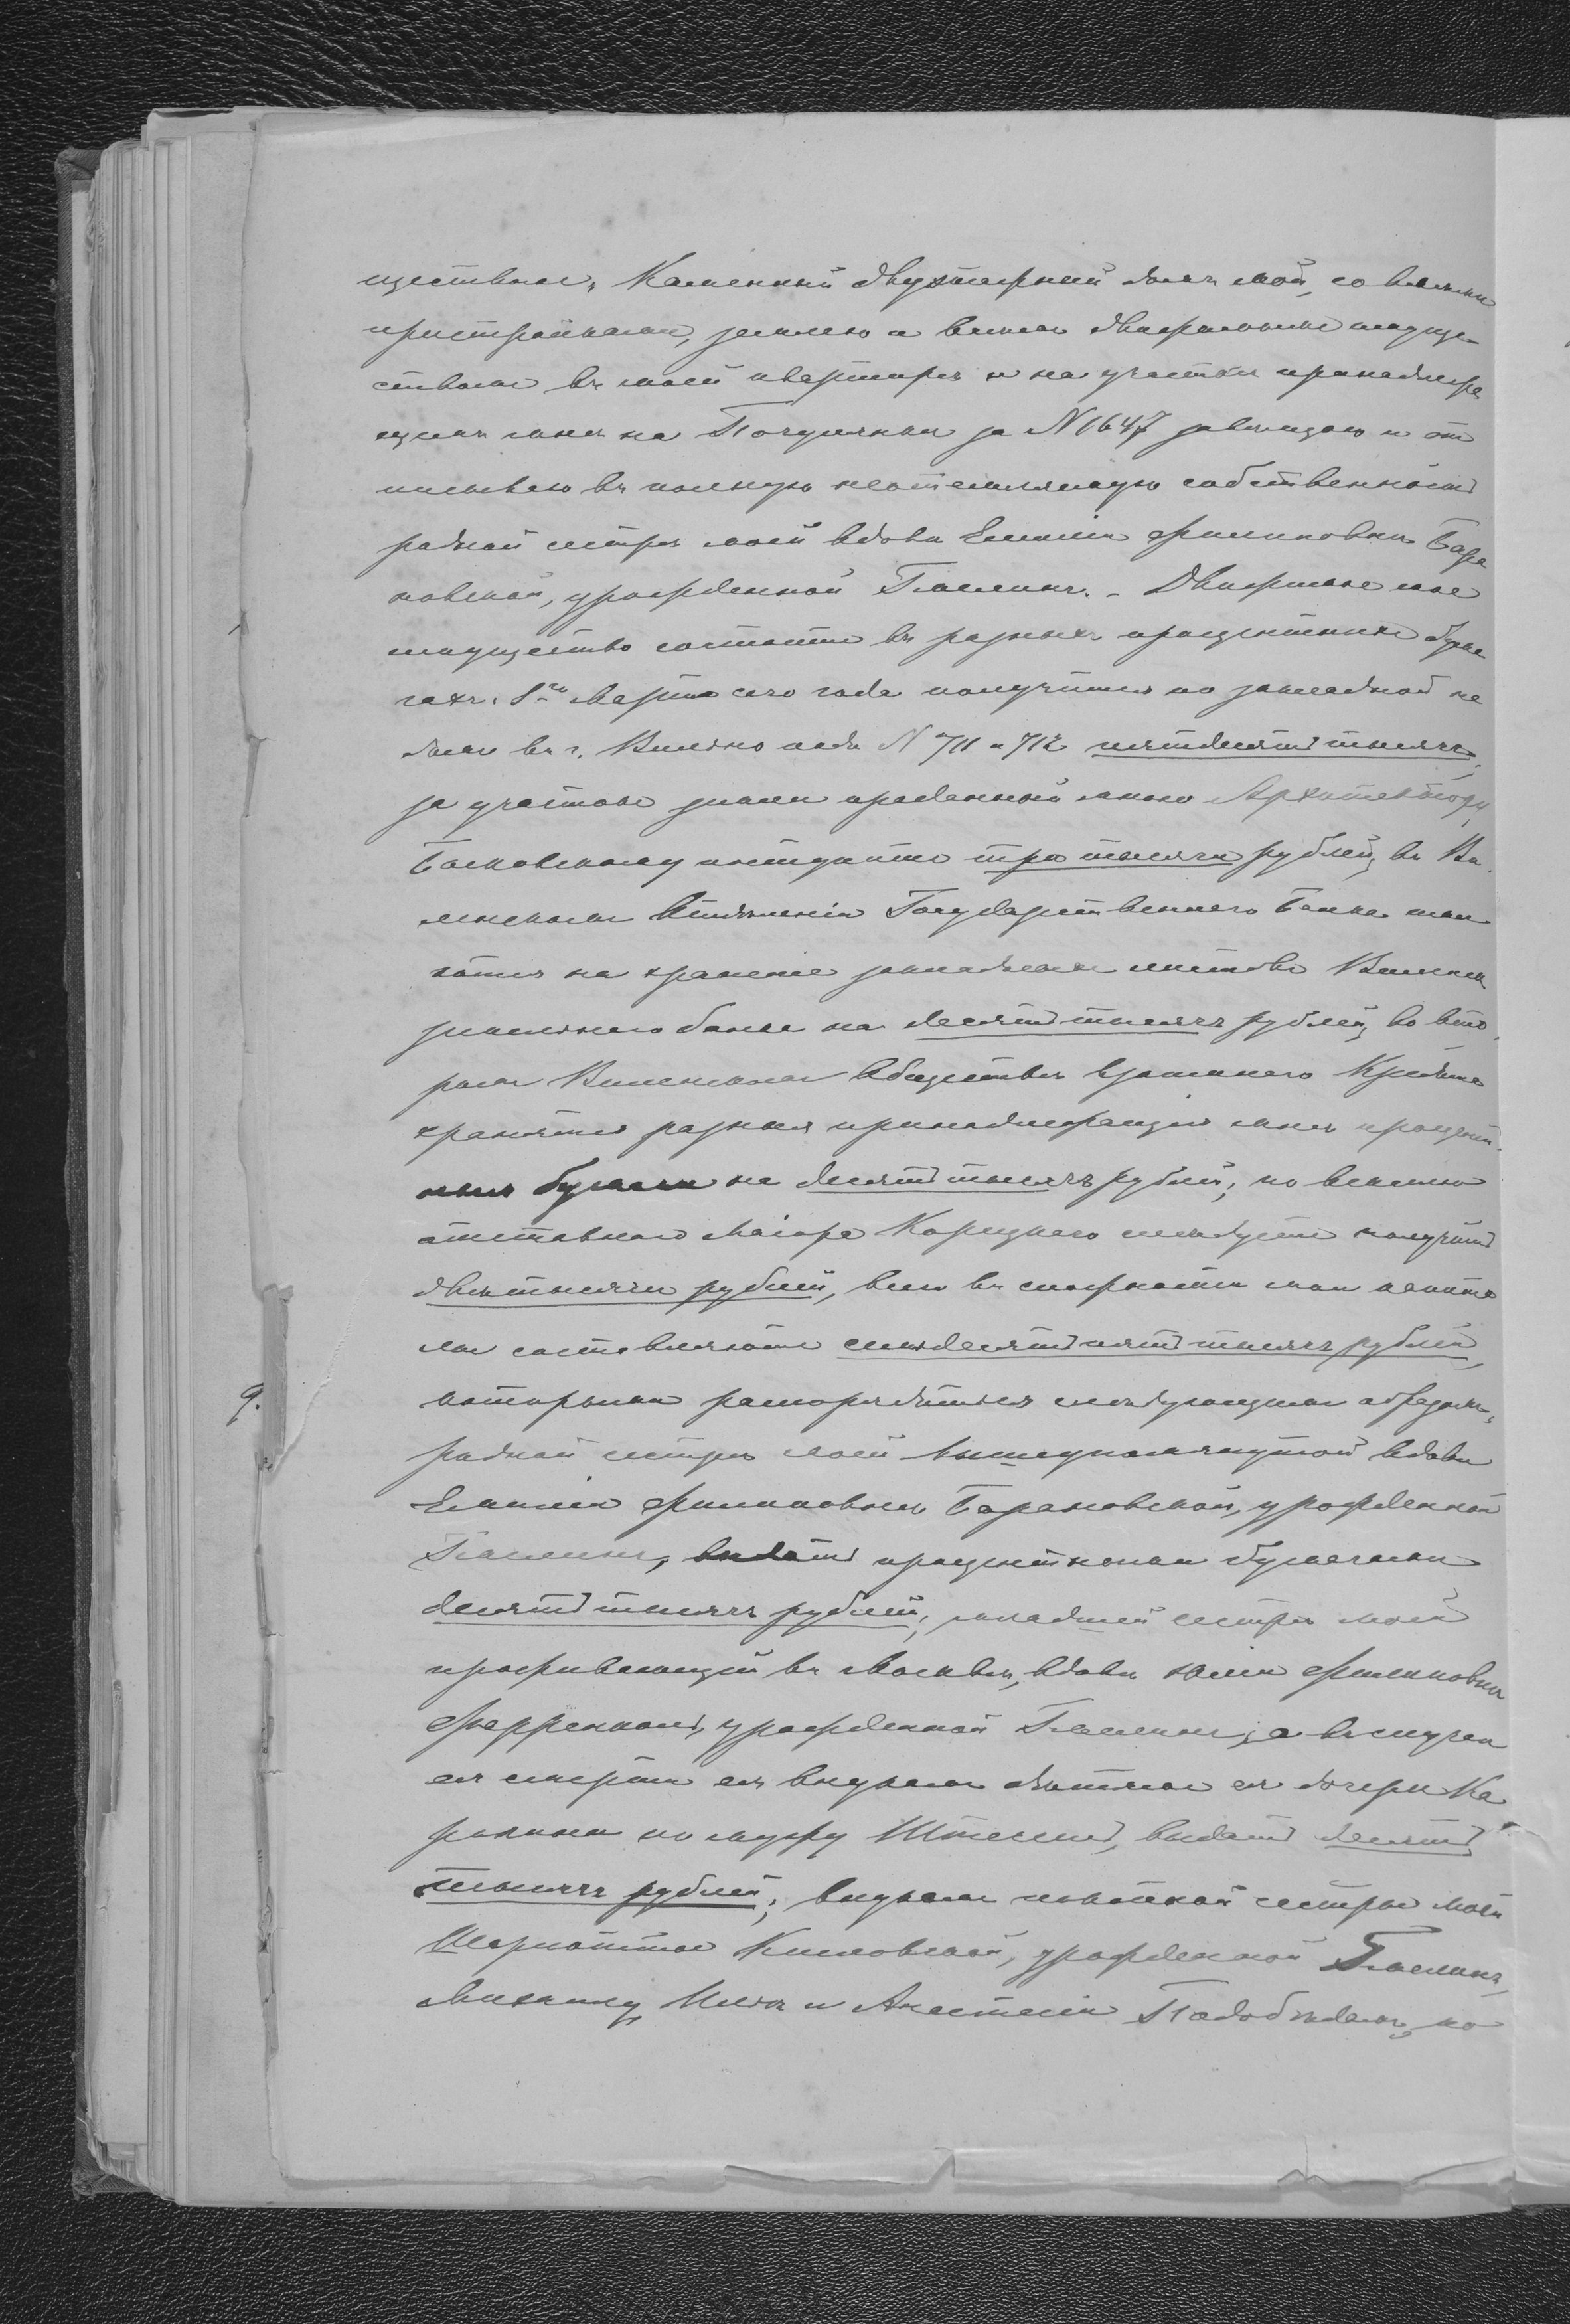 ществомъ, Каменный двухэтажный домъ мой, со всѣми
пристройками, землею и всѣмъ движимымъ имуще-
ствомъ въ моей квартирѣ и на участкѣ принадлежа
щемъ мнѣ на Погулянкѣ за N 1647 завѣщаю и от
писываю въ полную неотъемлемую собственность
родной сестрѣ моей вдовѣ Эмиліи Филиповнѣ Бара
новской, урожденной . - Движимое мое
имущество состоитъ въ разныхъ процентныхъ бума
гахъ. 1го Марта сего года получится по закладной на
домъ въ г. Вильно подъ N 711 и 712 пятдесятъ тысячъ,
за участокъ земли проданный мною Архитектору
поступитъ три тысячи рублей, въ Ви
ленскомъ Отдѣленіи Государственнаго Банка нахо
дятся на храненіе закладныхъ листовъ Виленск
земельнаго банка на десять тысячъ рублей, во вто
ромъ Виленскомъ Обществѣ Взаимнаго Кредита
хранятся разныя принадлежащія мнѣ процент
ныя бумаги на десять тысячъ рублей; по векселю
отставнаго Маіора Корицкаго слѣдуетъ получить
двѣ тысячи рублей, всего въ сложности мои капита
лы составляютъ семьдесятъ пять тысячъ рублей,
9. которыми распорядиться слѣдующимъ образомъ,
родной сестрѣ моей вышеупомянутой вдовѣ
Эмиліи Филиповнѣ Барановской, урожденной
выдать процентными бумагами
десять тысячъ рублей; младшей сестрѣ моей
проживающей въ Москвѣ, вдовѣ Юліи Филиповнѣ
урожденной а въ случаѣ
ея смерти ея внукамъ дѣтямъ ея дочери Ка
ролины по мужу выдать десять
тысячъ рублей; внукамъ покойной сестры моей
Шарлотты урожденной
Михаилу, и Анастасіи по